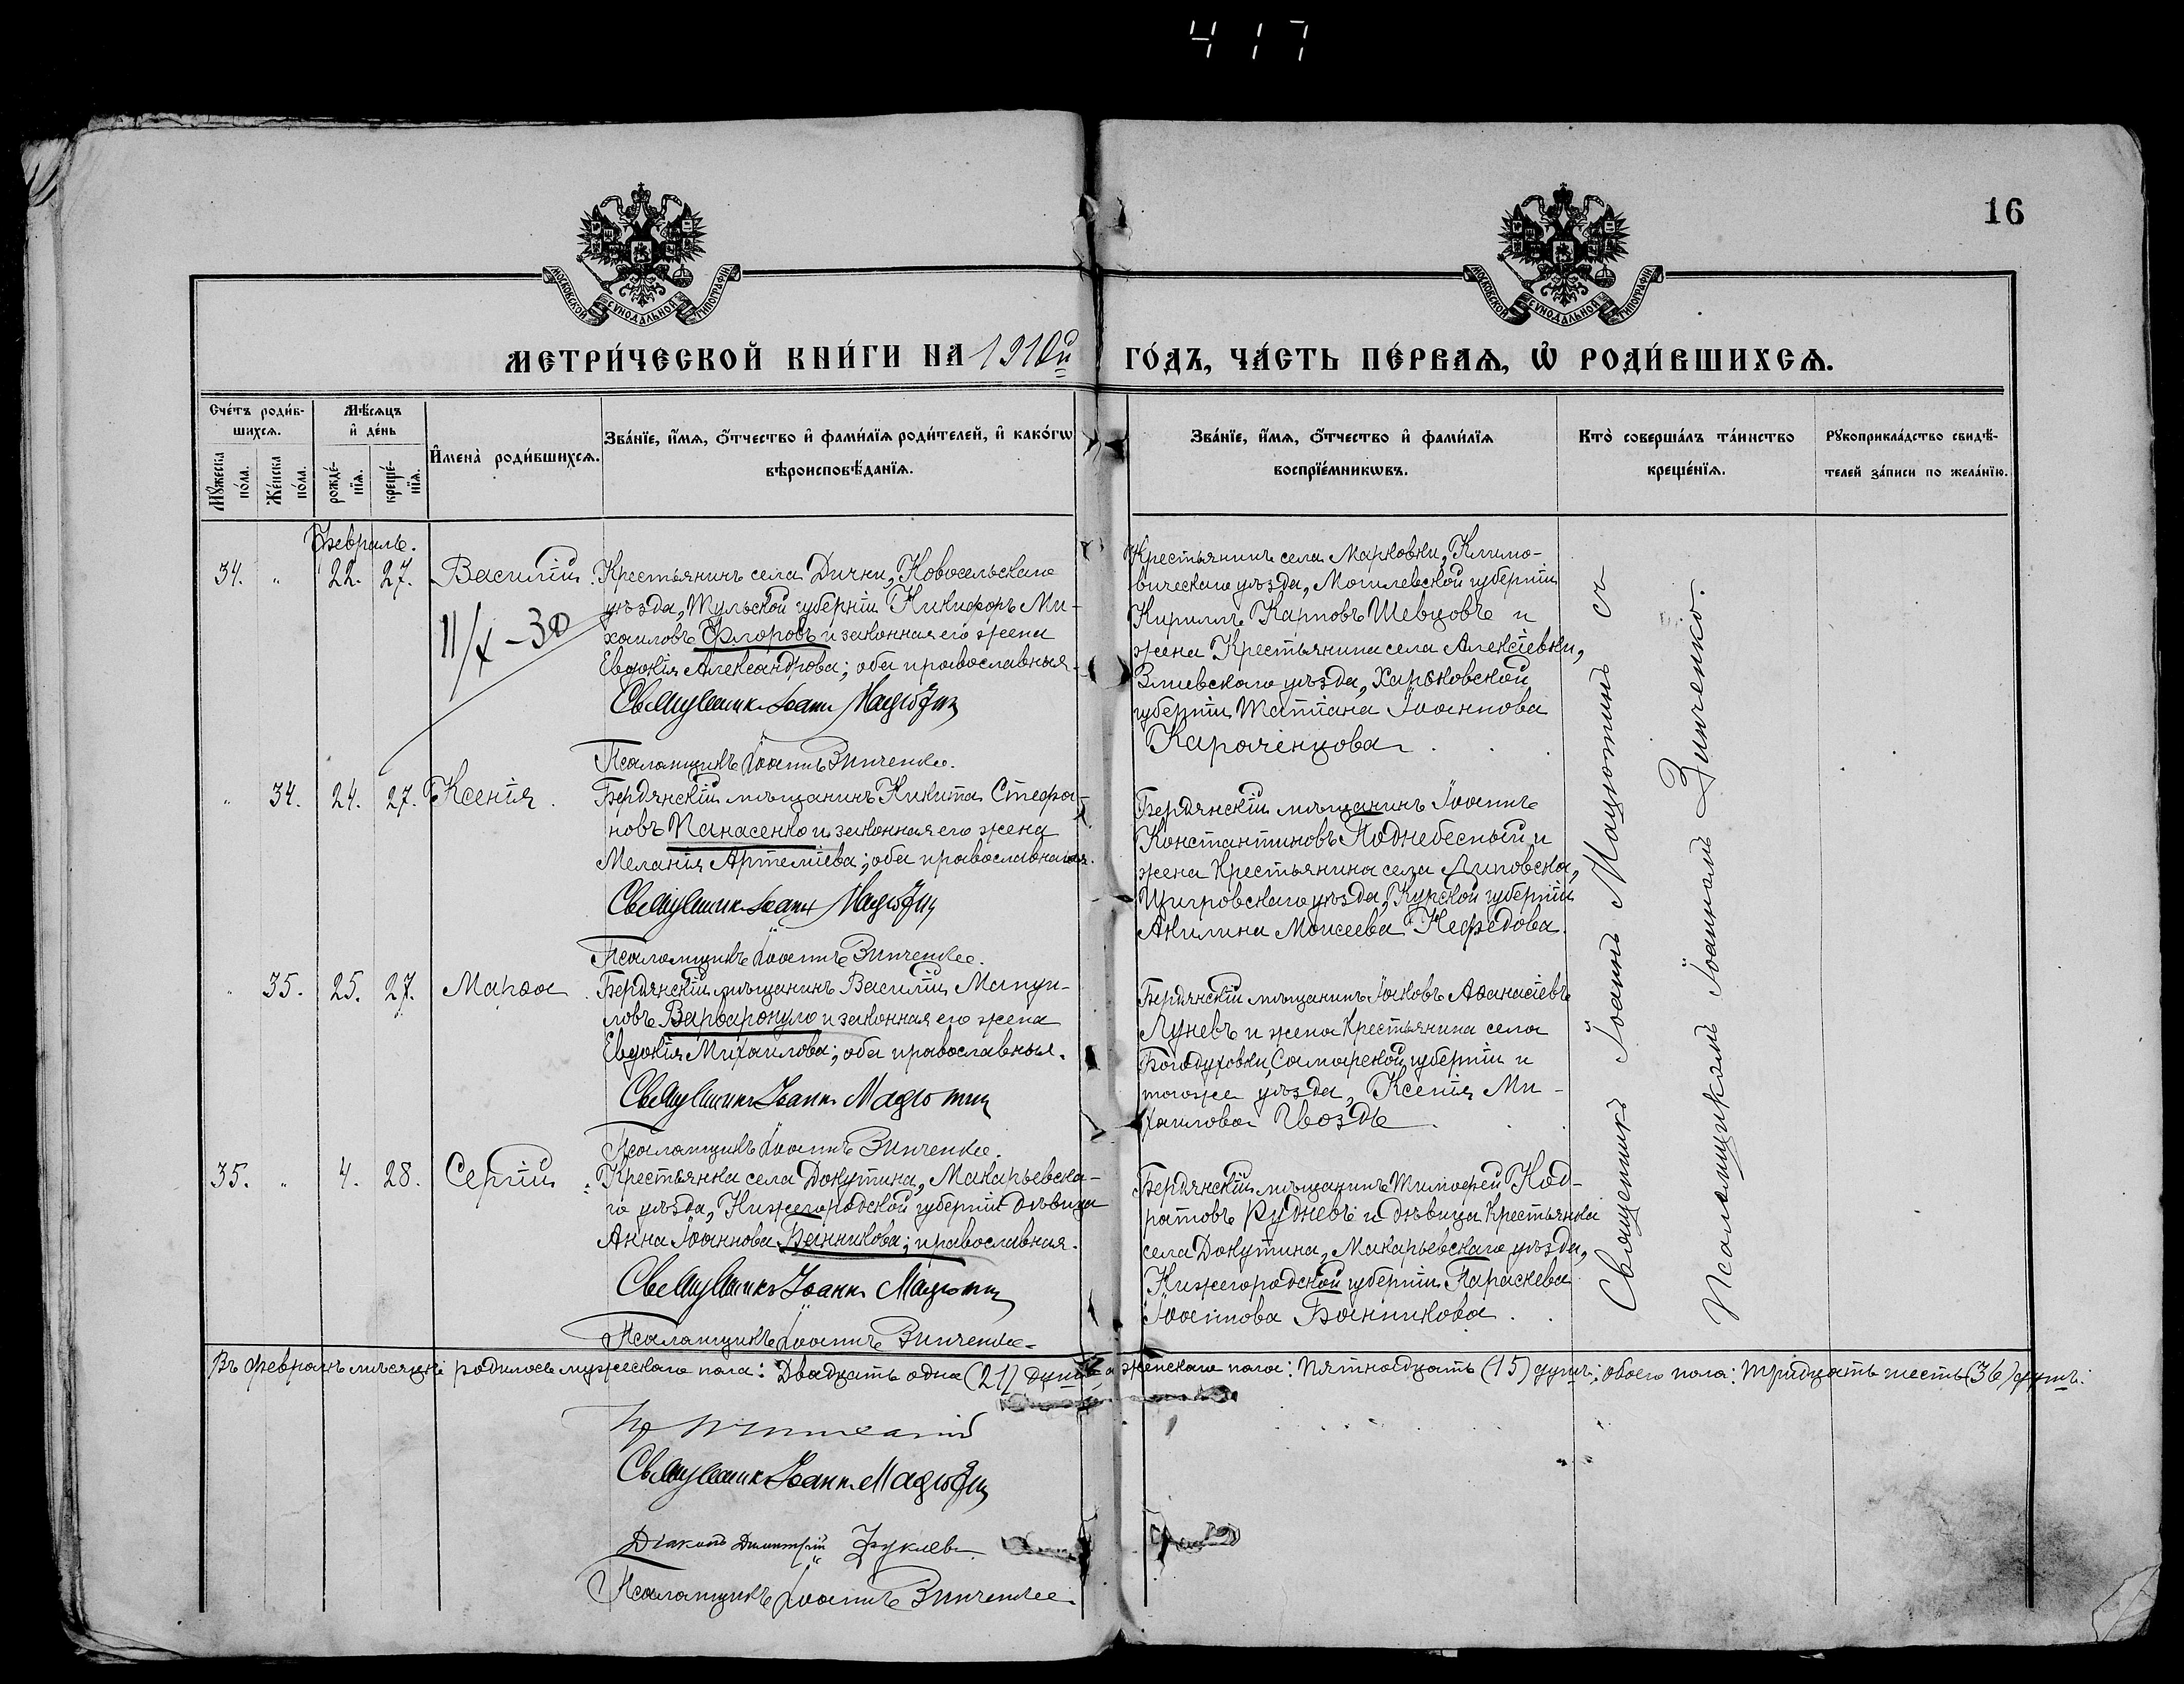 417
16
МОСКОВСКОЙ СѴНОДАЛЬНОЙ ТИПОГРАФІИ
МОСКОВСКОЙ СѴНОДАЛЬНОЙ ТИПОГРАФІИ
МЕТРИ́ЧЕСКОЙ КНИ́ГИ НА 1910й ГО́ДЪ, ЧА́СТЬ ПЕ́РВАѦ, Ѡ҆ РОДИ́ВШИХСѦ.
Сче́тъ роди́в-
шихсѧ.
Мꙋ́жеска по́ла.
Же́нска по́ла.
Мѣ́сѧцъ
и҆ де́нь
рожде́-
нїѧ.
креще́-
нїѧ.
И҆мена̀ роди́вшихсѧ.
Зва́нїе, и҆́мѧ, ѻ҆́тчество и҆ фами́лїѧ роди́телей, и҆ како́гѡ
вѣроисповѣ́данїѧ.
Зва́нїе, и҆́мѧ, ѻ҆́тчество и҆ фами́лїѧ
воспрїе́мникѡвъ.
Кто̀ соверша́лъ та́инство
креще́нїѧ.
Рꙋкоприкла́дство свидѣ́-
телей за́писи по жела́нїю.
Февраль.
34. " 22. 27. Василій. Крестьянинъ села Дички, Новосельскаго
уѣзда, Тульской губерніи Никифоръ Ми-
хаиловъ Флоровъ и законная его жена
Евдокія Александрова; оба православныя.
11/X-30
Священникъ Іоаннъ Мацютинъ
Псаломщикъ Іоаннъ Зинченко.
Крестьянинъ села Марковки, Климо-
вичскаго уѣзда, Могилевской губерніи
Кириллъ Карповъ Шевцовъ и
жена Крестьянина села Алексіевки,
Зміевскаго уѣзда, Харьковской
губерніи Татіана Іоаннова
Кароченцова.
" 34. 24. 27. Ксенія. Бердянскій мѣщанинъ Никита Стефа-
новъ Панасенко и законная его жена
Меланія Артеміева; оба православныя.
Священникъ Іоаннъ Мацютинъ
Псаломщикъ Іоаннъ Зинченко.
Бердянскій мѣщанинъ Іоаннъ
Константиновъ Поднебесный и
жена Крестьянина села Липовска,
Щигровскаго уѣзда, Курской губерніи
Акилина Моисеева Нефедова.
" 35. 25. 27. Марѳа. Бердянскій мѣщанинъ Василій Мануи-
ловъ и законная его жена
Евдокія Михаилова; оба православныя.
Священникъ Іоаннъ Мацютинъ
Псаломщикъ Іоаннъ Зинченко.
Бердянскій мѣщанинъ Іаковъ Аѳанасіевъ
Луневъ и жена Крестьянина села
Богодуховки, Самарской губерніи и
тогоже уѣзда, Ксенія Ми-
хаилова Гвоздь.
35. " 4. 28. Сергій. Крестьянка села Докучина, Макарьевска-
го уѣзда, Нижегородской губерніи дѣвица
Анна Іоаннова Банникова; православная.
Священникъ Іоаннъ Мацютинъ
Псаломщикъ Іоаннъ Зинченко.
Бердянскій мѣщанинъ Тимофей Код-
ратовъ Рудневъ и дѣвица Крестьянка
села Докучина, Макарьевскаго уѣзда,
Нижегородской губерніи Параскева
Іоаннова Банникова.
Священникъ Іоаннъ Мацютинъ съ
Псаломщикомъ Іоанномъ Зинченко.
Въ февралѣ мѣсяцѣ родилось мужескаго пола: двадцать одна (21) душъ, а женскаго пола: пятнадцать (15) душъ; обоего пола: тридцать шесть (36) душъ.
Священникъ Іоаннъ Мацютинъ
Діаконъ Димитрій
Псаломщикъ Іоаннъ Зинченко.